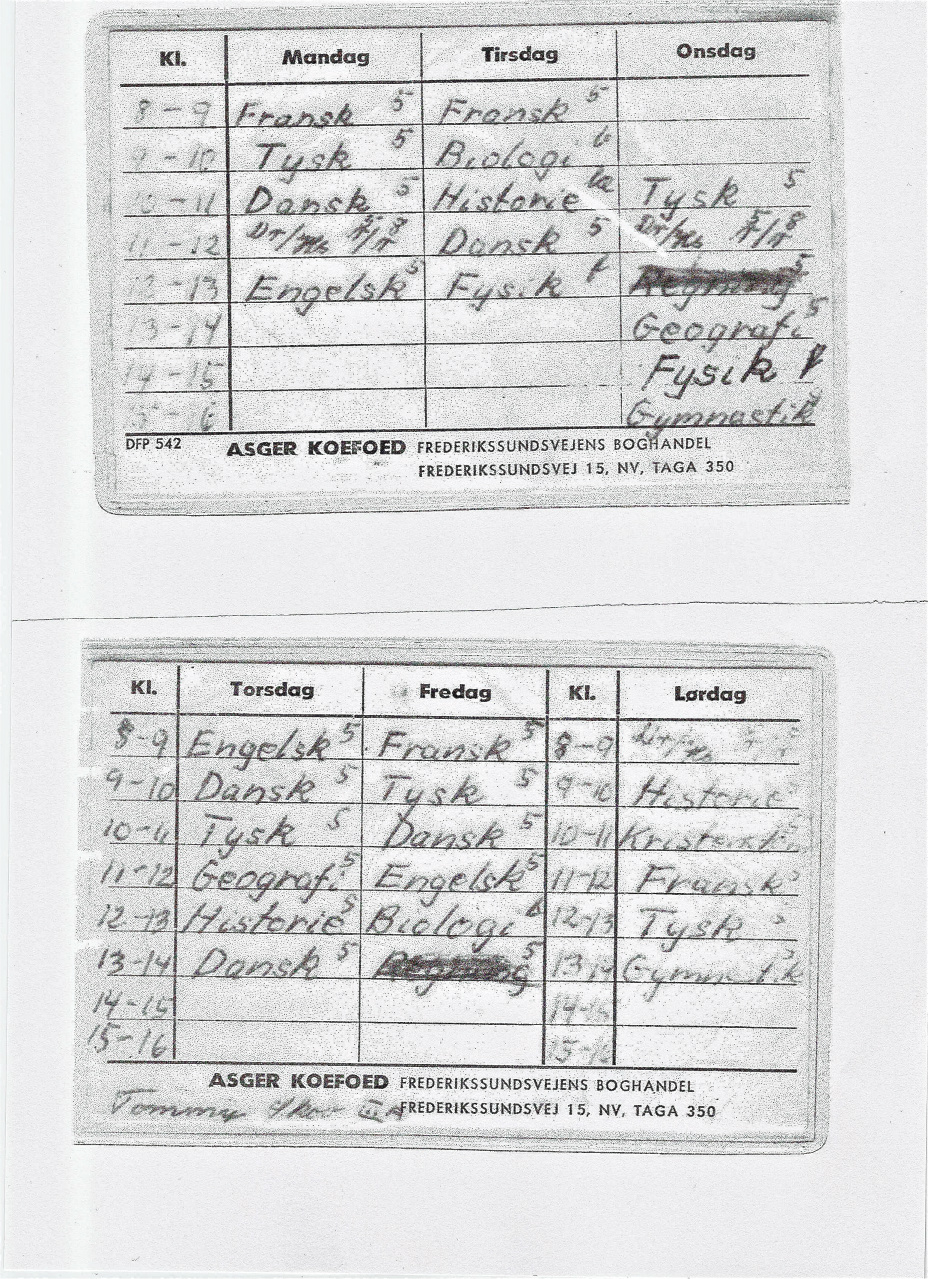 Kl. Mandag Tirsdag Onsdag
8-9 Fransk 5 Fransk 5
9-10 Tysk 5 Biologi b
10-11 Dansk 5 Historie Tysk 5
11-12 Dansk 5
12-13 Engelsk 5 Fysik f Regning 5
13-14 Geografi 5
14-15 Fysik f
15-16 Gymnastik
DFP 542 ASGER KOEFOED FREDERIKSSUNDSVEJENS BOGHANDEL
FREDERIKSSUNDSVEJ 15, NV, TAGA 350
Kl. Torsdag Fredag Kl. Lørdag
8-9 Engelsk 5 Fransk 5 8-9
9-10 Dansk 5 Tysk 5 9-10 Historie 5
10-11 Tysk 5 Dansk 5 10-11
11-12 Geografi 5 Engelsk 5 11-12 Fransk 5
12-13 Historie 5 Biologi b 12-13 Tysk 5
13-14 Dansk 5 Regning 5 13-14 Gymnastik
14-15 14-15
15-16 15-16
ASGER KOEFOED FREDERIKSSUNDSVEJENS BOGHANDEL
Tommy FREDERIKSSUNDSVEJ 15, NV, TAGA 350